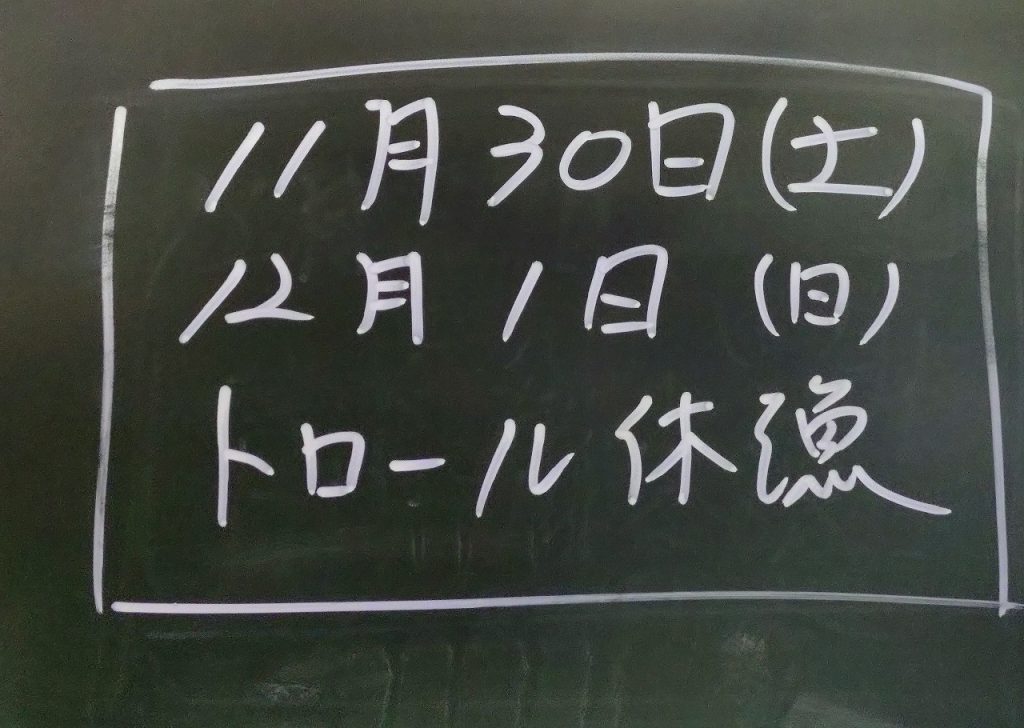 11月30日(土)
12月1日(日)
トロール休漁